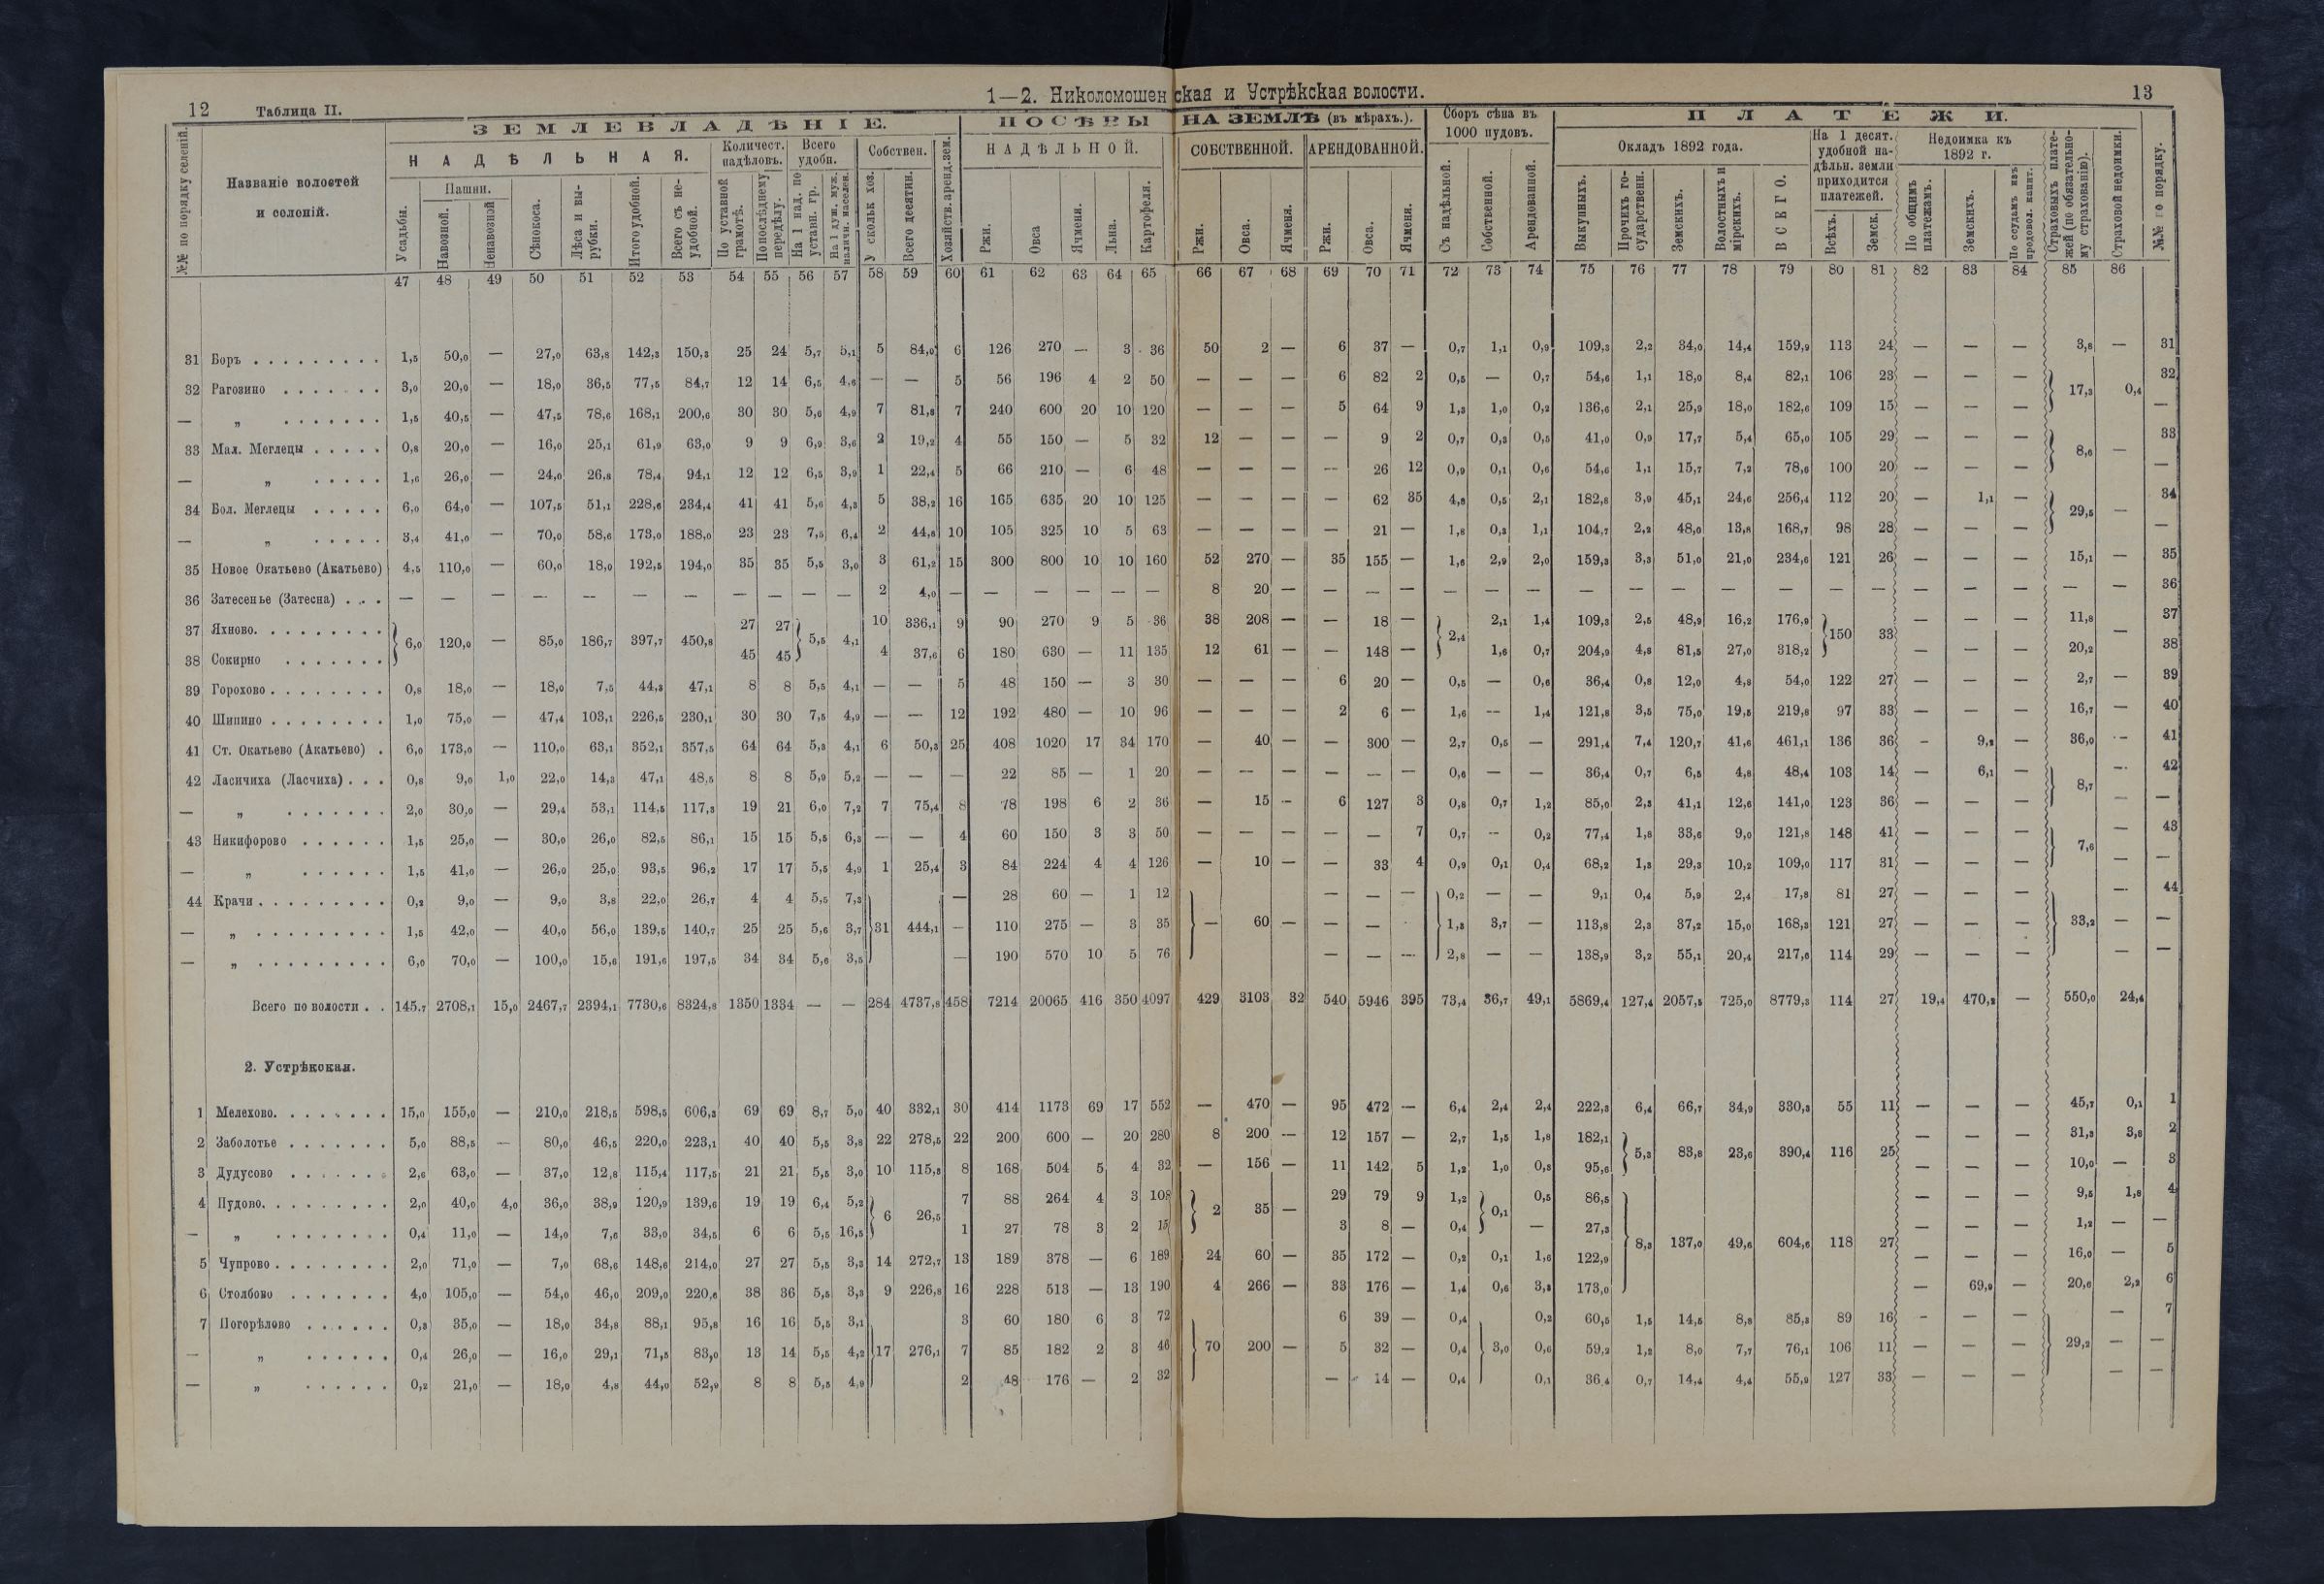 12 Таблица II. 1—2. Николомошенская и Устрѣкская волости. 13
№№ по порядку селеній.
Названіе волостей и селеній.
ЗЕМЛЕВЛАДѢНІЕ.
НАДѢЛЬНАЯ.
Усадьбы.
Пашни.
Навозной.
Ненавозной
Сѣнокоса.
Лѣса и вырубки.
Итого удобной.
Всего съ неудобной.
Количест. надѣловъ.
По уставной грамотѣ.
По послѣднему передѣлу.
Всего удобн.
На 1 над. по устави. гр.
На 1 душ. муж. наличн. населен.
Собствен.
У скольк хоз.
Всего десятин.
Хозяйств. аренд. зем.
ПОСѢВЫ НА ЗЕМЛѢ (въ мѣрахъ.).
НАДѢЛЬНОЙ.
Ржи.
Овса
Ячменя.
Льна.
Картофеля.
СОБСТВЕННОЙ.
Ржи.
Овса.
Ячменя.
АРЕНДОВАННОЙ.
Ржи.
Овса.
Ячменя.
Сборъ сѣна въ 1000 пудовъ.
Съ надѣльной.
Собственной.
Арендованной.
ПЛАТЕЖИ.
Окладъ 1892 года.
Выкупныхъ.
Прочихъ государственн.
Земскихъ.
Волостныхъ и мірскихъ.
ВСЕГО.
На 1 десят. удобной надѣльн. земли приходится платежей.
Всѣхъ.
Земск.
Недоимка къ 1892 г.
По общимъ платежамъ.
Земскихъ.
По ссудамъ изъ продовол. капит.
Страховыхъ платежей (по обязательному страхованію).
Страховой недоимки.
№№ по порядку.
47 48 49 50 51 52 53 54 55 56 57 58 59 60 61 62 63 64 65 66 67 68 69 70 71 72 73 74 75 76 77 78 79 80 81 82 83 84 85 86
31 Боръ . . . 1,5 50,0 — 27,0 63,8 142,3 150,3 25 24 5,7 5,1 5 84,0 6 126 270 — 3 36 50 2 — 6 37 — 0,7 1,1 0,9 109,3 2,2 34,0 14,4 159,9 113 24 — — — 3,8 — 31
32 Рагозино . . . 3,0 20,0 — 18,0 36,5 77,5 84,7 12 14 6,5 4,6 — — 5 56 196 4 2 50 — — — 6 82 2 0,5 — 0,7 54,6 1,1 18,0 8,4 82,1 106 23 — — — 17,3 0,4 32
— „ . . . 1,5 40,5 — 47,5 78,6 168,1 200,6 30 30 5,6 4,9 7 81,8 7 240 600 20 10 120 — — — 5 64 9 1,3 1,0 0,2 136,6 2,1 25,9 18,0 182,6 109 15 — — — —
33 Мал. Меглецы . . . 0,8 20,0 — 16,0 25,1 61,9 63,0 9 9 6,9 3,6 2 19,2 4 55 150 — 5 32 12 — — — 9 2 0,7 0,3 0,5 41,0 0,9 17,7 5,4 65,0 105 29 — — — 8,6 — 33
— „ . . . 1,6 26,0 — 24,0 26,8 78,4 94,1 12 12 6,5 3,9 1 22,4 5 66 210 — 6 48 — — — — 26 12 0,9 0,1 0,6 54,6 1,1 15,7 7,2 78,6 100 20 — — — —
34 Бол. Меглецы . . . 6,0 64,0 — 107,5 51,1 228,6 234,4 41 41 5,6 4,3 5 38,2 16 165 635 20 10 125 — — — — 62 35 4,8 0,5 2,1 182,8 3,9 45,1 24,6 256,4 112 20 — 1,1 — 29,5 — 34
— „ . . . 3,4 41,0 — 70,0 58,6 173,0 188,0 23 23 7,5 6,4 2 44,8 10 105 325 10 5 63 — — — — 21 — 1,8 0,3 1,1 104,7 2,2 48,0 13,8 168,7 98 28 — — — —
35 Новое Окатьево (Акатьево) 4,5 110,0 — 60,0 18,0 192,5 194,0 35 35 5,5 3,0 3 61,2 15 300 800 10 10 160 52 270 — 35 155 — 1,6 2,9 2,0 159,3 3,3 51,0 21,0 234,6 121 26 — — — 15,1 — 35
36 Затесенье (Затесна) . . . — — — — — — — — — — — 2 4,0 — — — — — — 8 20 — — — — — — — — — — — — — — — — — — — 36
37 Яхново. . . . 6,0 120,0 — 85,0 186,7 397,7 450,8 27 27 5,5 4,1 10 336,1 9 90 270 9 5 36 38 208 — — 18 — 2,4 2,1 1,4 109,3 2,5 48,9 16,2 176,9 150 33 — — — 11,8 — 37
38 Сокирно . . . 45 45 4 37,6 6 180 630 — 11 135 12 61 — — 148 — 1,6 0,7 204,9 4,8 81,5 27,0 318,2 — — — 20,2 38
39 Горохово . . . 0,8 18,0 — 18,0 7,5 44,3 47,1 8 8 5,5 4,1 — — 5 48 150 — 3 30 — — — 6 20 — 0,5 — 0,6 36,4 0,8 12,0 4,8 54,0 122 27 — — — 2,7 — 39
40 Шипино . . . 1,0 75,0 — 47,4 103,1 226,5 230,1 30 30 7,5 4,9 — — 12 192 480 — 10 96 — — — 2 6 — 1,6 — 1,4 121,8 3,5 75,0 19,5 219,8 97 33 — — — 16,7 — 40
41 Ст. Окатьево (Акатьево) . 6,0 173,0 — 110,0 63,1 352,1 357,5 64 64 5,3 4,1 6 50,3 25 408 1020 17 34 170 — 40 — — 300 — 2,7 0,5 — 291,4 7,4 120,7 41,6 461,1 136 36 — 9,2 — 36,0 — 41
42 Ласичиха (Ласчиха) . . . 0,8 9,0 1,0 22,0 14,3 47,1 48,5 8 8 5,9 5,2 — — — 22 85 — 1 20 — — — — — — 0,6 — — 36,4 0,7 6,5 4,8 48,4 103 14 — 6,1 — 8,7 — 42
— „ . . . 2,0 30,0 — 29,4 53,1 114,5 117,3 19 21 6,0 7,2 7 75,4 8 78 198 6 2 36 — 15 — 6 127 3 0,8 0,7 1,2 85,0 2,3 41,1 12,6 141,0 123 36 — — — —
43 Никифорово . . . 1,5 25,0 — 30,0 26,0 82,5 86,1 15 15 5,5 6,3 — — 4 60 150 3 3 50 — — — — — 7 0,7 — 0,2 77,4 1,8 33,6 9,0 121,8 148 41 — — — 7,6 — 43
— „ . . . 1,5 41,0 — 26,0 25,0 93,5 96,2 17 17 5,5 4,9 1 25,4 3 84 224 4 4 126 — 10 — — 33 4 0,9 0,1 0,4 68,2 1,3 29,3 10,2 109,0 117 31 — — — —
44 Крачи . . . 0,2 9,0 — 9,0 3,8 22,0 26,7 4 4 5,5 7,3 — 28 60 — 1 12 — — — 0,2 — — 9,1 0,4 5,9 2,4 17,8 81 27 — — — — 44
— „ . . . 1,5 42,0 — 40,0 56,0 139,5 140,7 25 25 5,6 3,7 31 444,1 — 110 275 — 3 35 — 60 — — — 1,3 3,7 — 113,8 2,3 37,2 15,0 168,3 121 27 — — — 33,2 — —
— „ . . . 6,0 70,0 — 100,0 15,6 191,6 197,5 34 34 5,6 3,5 — 190 570 10 5 76 — — — 2,8 — — 138,9 3,2 55,1 20,4 217,6 114 29 — — — — —
Всего по волости . . 145,7 2708,1 15,0 2467,7 2394,1 7730,6 8324,8 1350 1334 — — 284 4737,8 458 7214 20065 416 350 4097 429 3103 32 540 5946 395 73,4 36,7 49,1 5869,4 127,4 2057,5 725,0 8779,3 114 27 19,4 470,2 — 550,0 24,4
2. Устрѣкская.
1 Мелехово. . . . 15,0 155,0 — 210,0 218,5 598,5 606,3 69 69 8,7 5,0 40 332,1 30 414 1173 69 17 552 — 470 — 95 472 — 6,4 2,4 2,4 222,3 6,4 66,7 34,9 330,3 55 11 — — — 45,7 0,1 1
2 Заболотье . . . 5,0 88,5 — 80,0 46,5 220,0 223,1 40 40 5,5 3,8 22 278,5 22 200 600 — 20 280 8 200 — 12 157 — 2,7 1,5 1,8 182,1 5,3 83,8 23,6 390,4 116 25 — — — 31,3 3,6 2
3 Дудусово . . . 2,6 63,0 — 37,0 12,8 115,4 117,5 21 21 5,5 3,0 10 115,8 8 168 504 5 4 32 — 156 — 11 142 5 1,2 1,0 0,3 95,6 — — — 10,0 — 3
4 Пудово. . . . 2,0 40,0 4,0 36,0 38,9 120,9 139,6 19 19 6,4 5,2 6 26,5 7 88 264 4 3 108 2 35 — 29 79 9 1,2 0,1 0,5 86,5 — — — 9,5 1,8 4
— „ . . . 0,4 11,0 — 14,0 7,6 33,0 34,5 6 6 5,5 16,5 1 27 78 3 2 15 3 8 — 0,4 — 27,3 — — — 1,2 — —
5 Чупрово . . . 2,0 71,0 — 7,0 68,6 148,6 214,0 27 27 5,5 3,3 14 272,7 13 189 378 — 6 189 24 60 — 35 172 — 0,2 0,1 1,6 122,9 8,3 137,0 49,6 604,6 118 27 — — — 16,0 — 5
6 Столбово . . . 4,0 105,0 — 54,0 46,0 209,0 220,6 38 36 5,5 3,3 9 226,8 16 228 513 — 13 190 4 266 — 33 176 — 1,4 0,6 3,3 173,0 — 69,9 — 20,6 2,2 6
7 Погорѣлово . . . 0,3 35,0 — 18,0 34,8 88,1 95,8 16 16 5,5 3,1 3 60 180 6 3 72 6 39 — 0,4 0,2 60,5 1,5 14,5 8,8 85,3 89 16 — — — — 7
— „ . . . 0,4 26,0 — 16,0 29,1 71,5 83,0 13 14 5,5 4,2 17 276,1 7 85 182 2 3 46 70 200 — 5 32 — 0,4 3,0 0,6 59,2 1,2 8,0 7,7 76,1 106 11 — — — 29,2 — —
— „ . . . 0,2 21,0 — 18,0 4,8 44,0 52,9 8 8 5,5 4,9 2 48 176 — 2 32 — 14 — 0,4 0,1 36,4 0,7 14,4 4,4 55,9 127 33 — — — — —